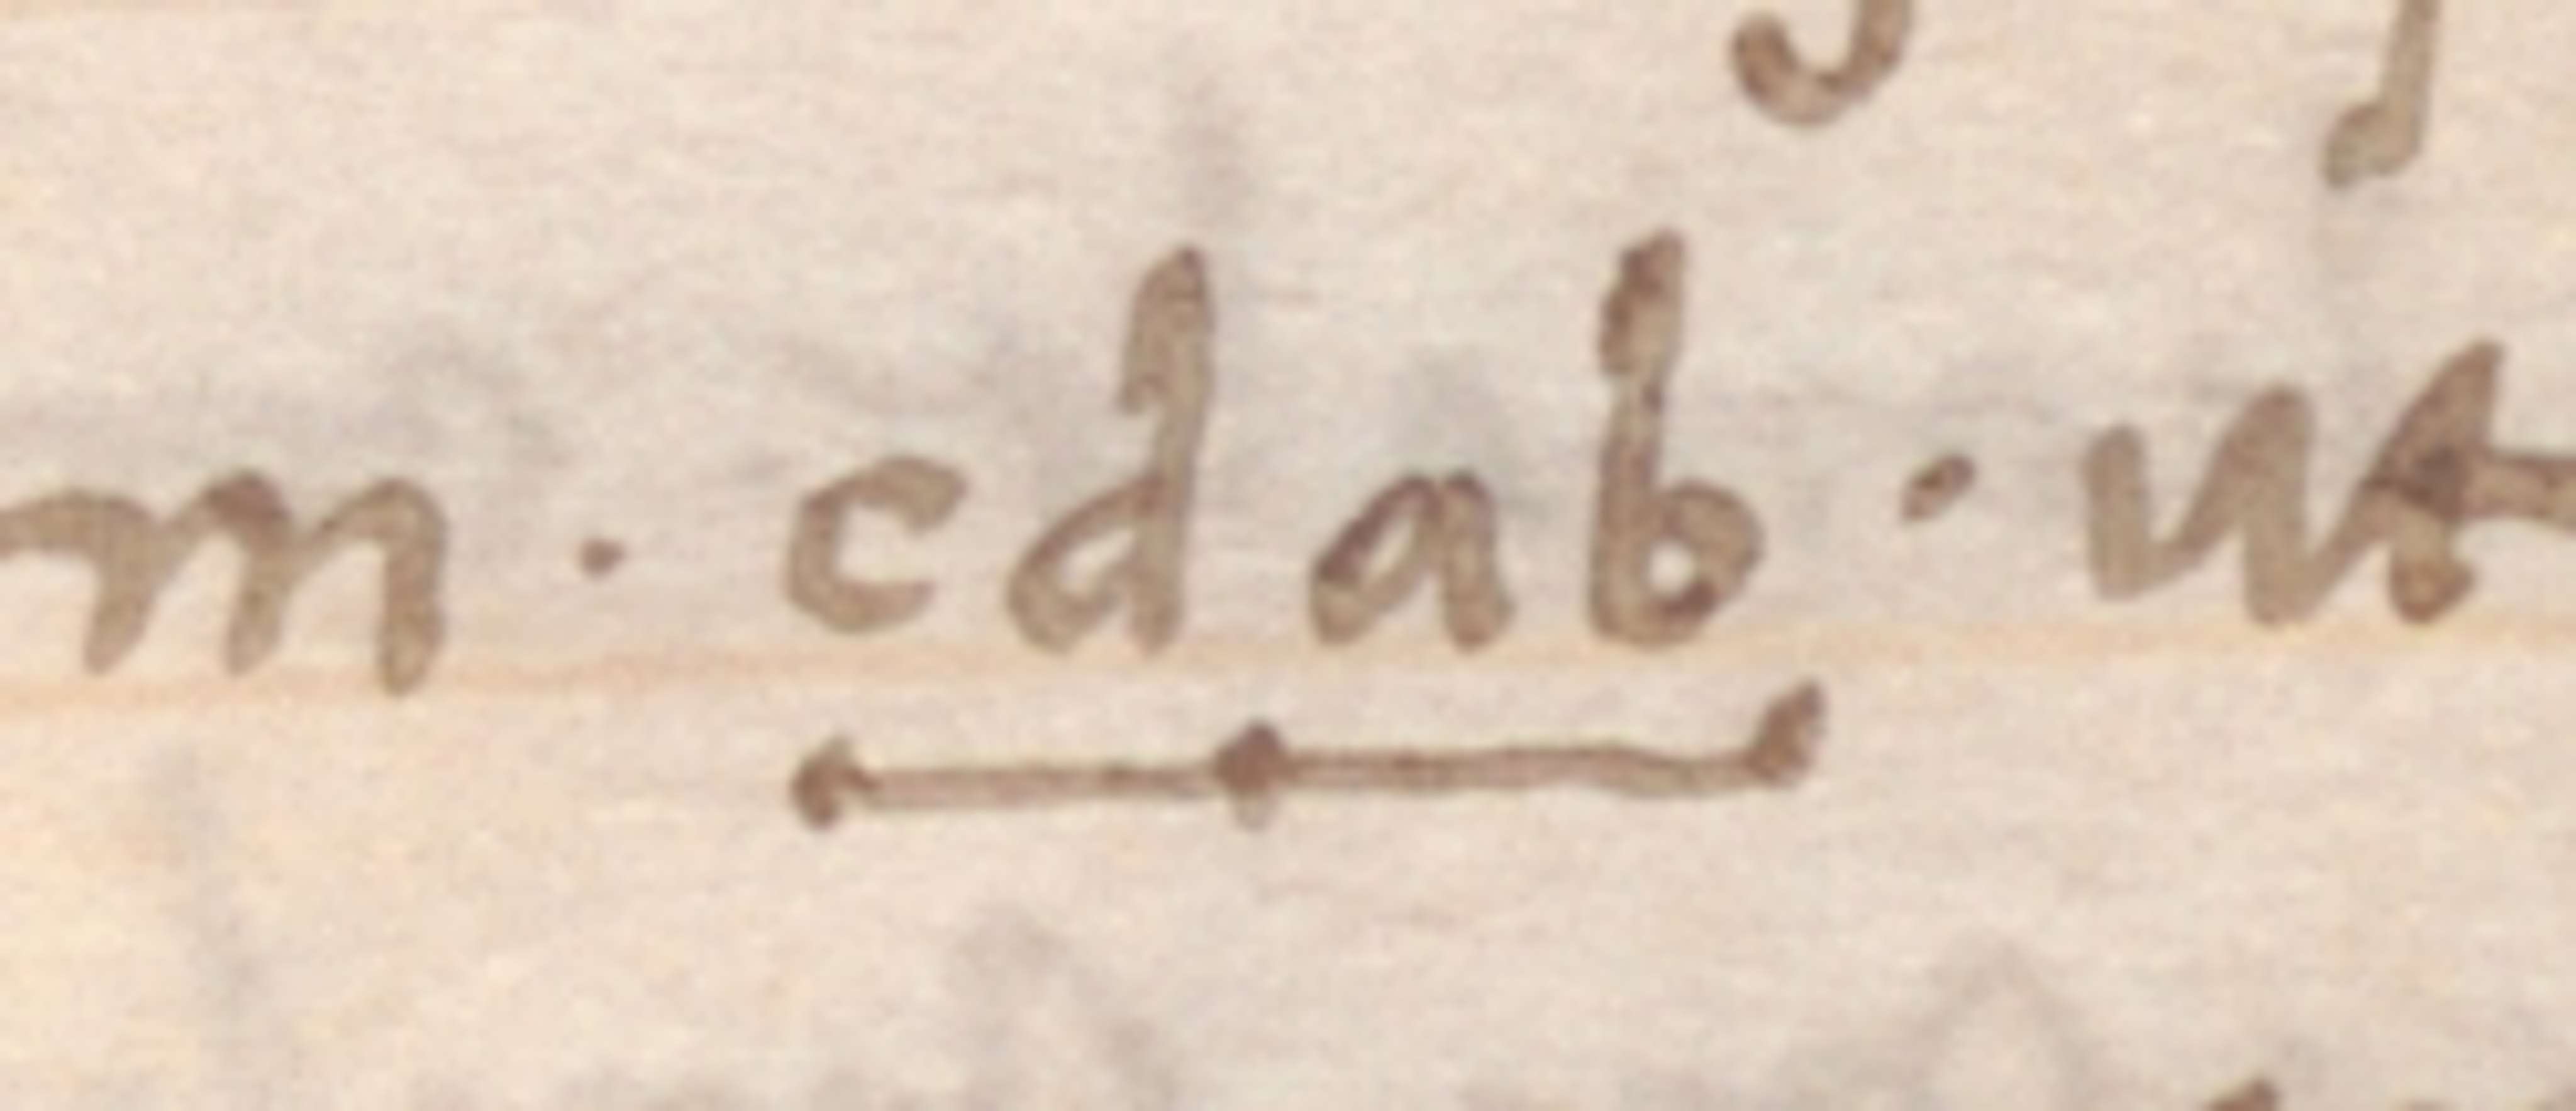 m · cdab · ut